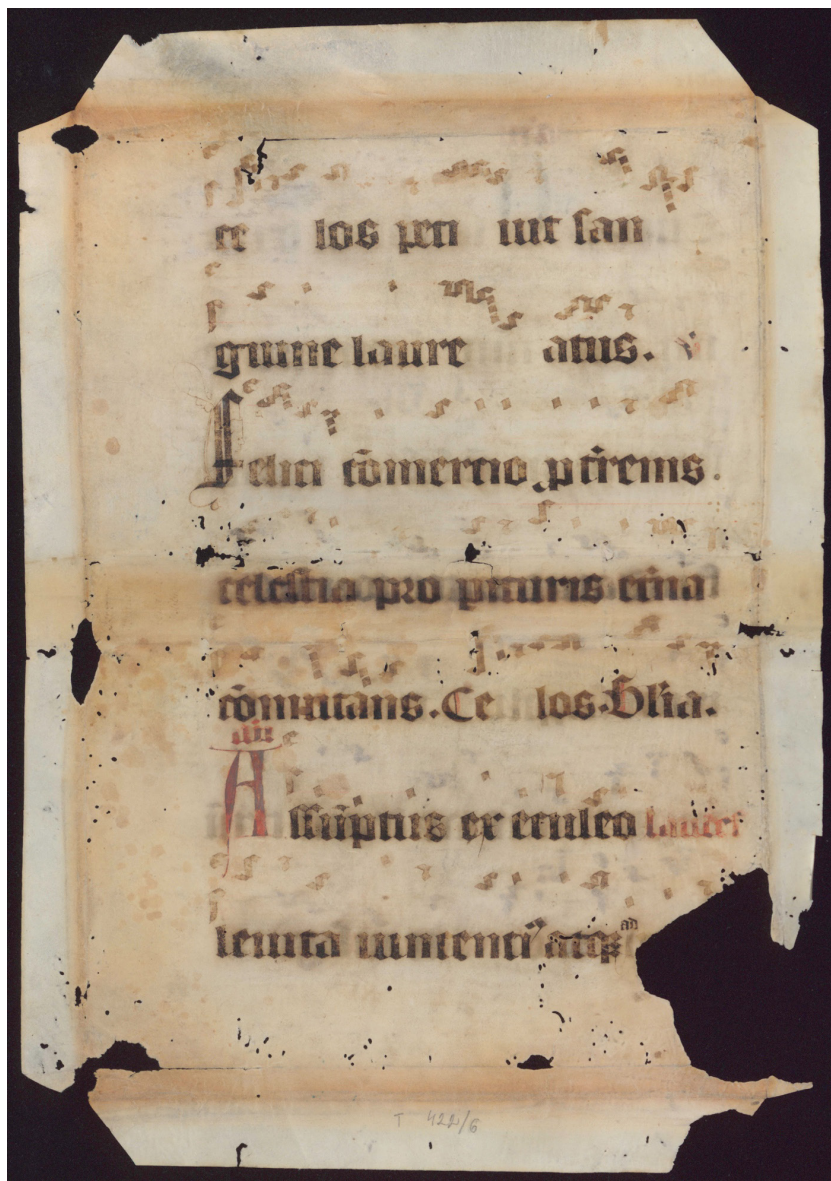 ce los peti uit san
guine laure atus.
Felici cōmercio p t̄renis.
celestia pro perituris et̄na
cōmutans. Ce los. Gl̄ia.
añ
Assūptus ex eculeo laudes
leuita iumenti atqꝫ
T 422/6